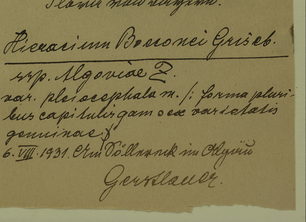 Hieracium Bocconei Griseb.
ssp. Algoviae Z.
var. pleiocephala m. /: forma pluri
bus capitulis gamocæ varietatis
genuinae
6. VIII. 1931. Am Söllereck im Allgäu
Gerstlauer.